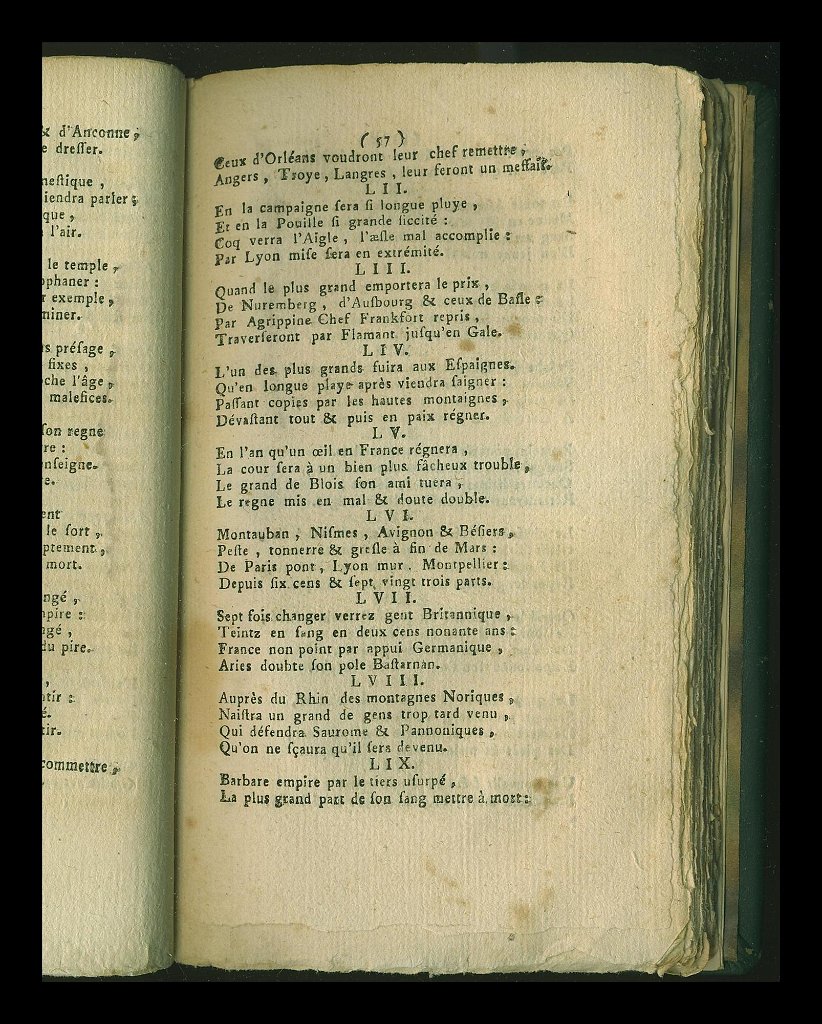 & d'Anconne,
e dresser.
nestique,
iendra parler;
que,
l'air.
le temple,
ophaner:
r exemple,
miner.
s présage,
fixes,
che l'âge,
malefices.
son regne
re:
nseigne.
e.
ent
le sort,
ptement,
mort.
ngé,
pire:
ngé,
du pire.
,
tir:
é.
tir.
commettre,
(57)
Ceux d'Orléans voudront leur chef remettre,
Angers, Troye, Langres, leur feront un messait.
LII.
En la campaigne sera si longue pluye,
Et en la Pouille si grande siccité:
Coq verra l'Aigle, l'æsle mal accomplie:
Par Lyon mise sera en extrémité.
LIII.
Quand le plus grand emportera le prix,
De Nuremberg, d'Ausbourg & ceux de Basle:
Par Agrippine Chef Frankfort repris,
Traverseront par Flamant jusqu'en Gale.
LIV.
L'un des plus grands fuira aux Espaignes.
Qu'en longue playe après viendra saigner:
Passant copies par les hautes montaignes,
Dévastant tout & puis en paix régner.
LV.
En l'an qu'un œil en France régnera,
La cour sera à un bien plus fâcheux trouble,
Le grand de Blois son ami tuera,
Le regne mis en mal & doute double.
LVI.
Montauban, Nismes, Avignon & Bésiers,
Peste, tonnerre & gresle à fin de Mars:
De Paris pont, Lyon mur. Montpellier:
Depuis six cens & sept vingt trois parts.
LVII.
Sept fois changer verrez gent Britannique,
Teintz en sang en deux cens nonante ans:
France non point par appui Germanique,
Aries doubte son pole Bastarnan.
LVIII.
Auprès du Rhin des montagnes Noriques,
Naistra un grand de gens trop tard venu,
Qui défendra Saurome & Pannoniques,
Qu'on ne sçaura qu'il sera devenu.
LIX.
Barbare empire par le tiers usurpé,
La plus grand part de son sang mettre à mort: